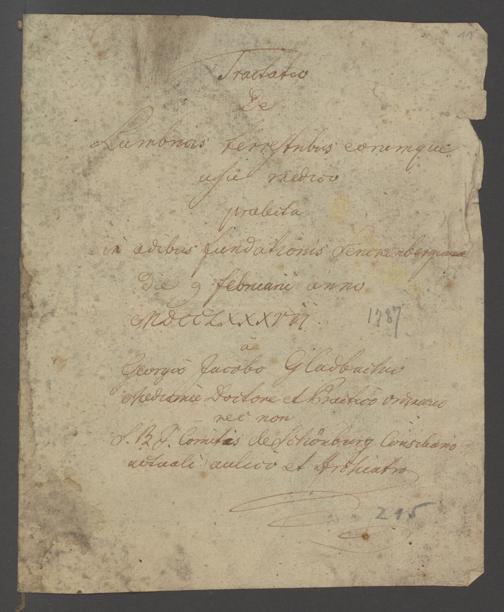 11
Tractatio
De
Lumbricis terrestribus eorumque
usu medico
prælecta
in ædibus fundationis Senckenbergianæ
Die 9 februarii anno
MDCCLXXXVII 1787
a
Georgio Jacobo Gladbachio
Medicinæ Doctore et Practico ordinario
nec non
S. R. I. Comitis de Schönburg Consiliario
actuali aulico et Archiatro
215